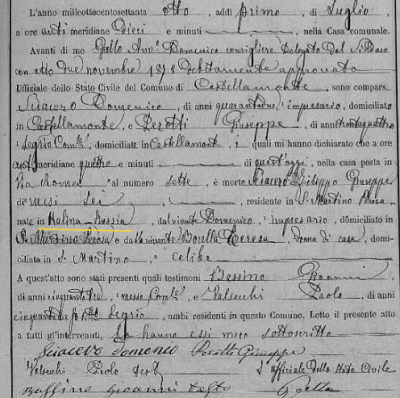 L'anno milleottocentosettanta otto, addì primo, di Luglio,
a ore anti meridiane Dieci e minuti, nella Casa comunale.
Avanti di me Gallo Avv. Domenico consigliere Delegato dal Sindaco
con atto due novembre 187 debitamente approvato
Uffiziale dello Stato Civile del Comune di Castellamonte, sono compar
Sciacero Domenico, di anni quarantadue, impresario, domiciliato
in Castellamonte, e Perotti Giuseppe, di anni trentaquattro
Segrio Com.le, domiciliato in Castellamonte, i quali mi hanno dichiarato che a ore
meridiane quattro e minuti di quest'oggi, nella casa posta in
Via Romea al numero sette, è morto Sciacero Filippo Giuseppe
di mesi sei, residente in S. Martino
nato in Kalina Russia, dal vivente Domenico, impresario, domiciliato in
S. Martino Perosa e dalla vivente Borella Teresa, donna di casa, domi-
ciliata in S. Martino, celibe
A quest'atto sono stati presenti quali testimoni Bessino Giovanni
di anni cinquantatre, messo Com.le e Valsechi Paolo, di anni
cinquanta Segrio, ambi residenti in questo Comune. Letto il presente atto
a tutti gl'intervenuti, lo hanno essi meco sottoscritto
Sciacero Domenico Perotti Giuseppe
Valsechi Paolo test. L'Ufficiale dello Stato Civile
Giovanni teste Gallo